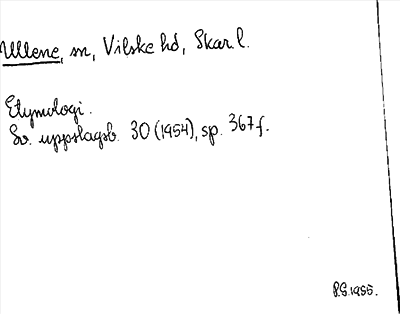 Ullene, sn, Vilske hd, Skar.l.
Etymologi.
Sv. uppslagsb. 30 (1954), sp. 367 f.
P.G. 1955.